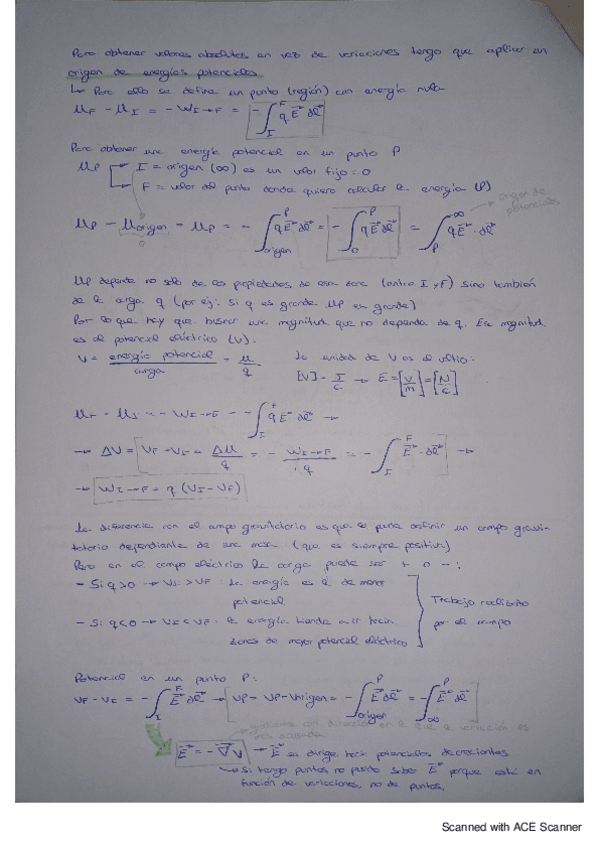 Para obtener valores absolutos en vez de variaciones tengo que aplicar un
origen de energías potenciales.
↳ Para ello se define un punto (región) con energía nula
U_F - U_I = -W_I→F = -∫_I^F q E⃗ dl⃗
Para obtener una energía potencial en un punto P
U_P I = origen (∞) es un valor fijo = 0
F = valor del punto donde quiero calcular la energía (P)
origen de
potenciales
U_P - U_origen = U_P = -∫_origen^P q E⃗ dl⃗ = -∫_0^P q E⃗ dl⃗ = ∫_P^∞ q E⃗ · dl⃗
0
U_P depende no solo de las propiedades de esa zona (entre I y F) sino también
de la carga q (por ej: si q es grande U_P es grande)
Por lo que hay que buscar una magnitud que no dependa de q. Esa magnitud
es el potencial eléctrico (V).
V = energía potencial / carga = U / q La unidad de V es el voltio:
[V] = J/C → E = [V/m] = [N/C]
U_F - U_I = -W_I→F = -∫_I^F q E⃗ dl⃗ →
→ ΔV = V_F - V_I = ΔU / q = - W_I→F / q = -∫_I^F E⃗ · dl⃗ →
→ W_I→F = q (V_I - V_F)
La diferencia con el campo gravitatorio es que se puede definir un campo gravi-
tatorio dependiente de una masa (que es siempre positiva)
Pero en el campo eléctrico la carga puede ser + o - :
- Si q>0 → V_I > V_F : la energía es la de menor
potencial
Trabajo realizado
- Si q<0 → V_I < V_F : la energía tiende a ir hacia
por el campo
zonas de mayor potencial eléctrico
Potencial en un punto P:
V_F - V_I = -∫_I^F E⃗ dl⃗ → V_P = V_P - V_origen = -∫_origen^P E⃗ dl⃗ = -∫_∞^P E⃗ dl⃗
gradiente con dirección en la que la variación es
más acusada
E⃗ = -∇⃗V → E⃗ se dirige hacia potenciales decrecientes
↳ Si tengo puntos no puedo saber E⃗ porque está en
función de variaciones, no de puntos.
Scanned with ACE Scanner